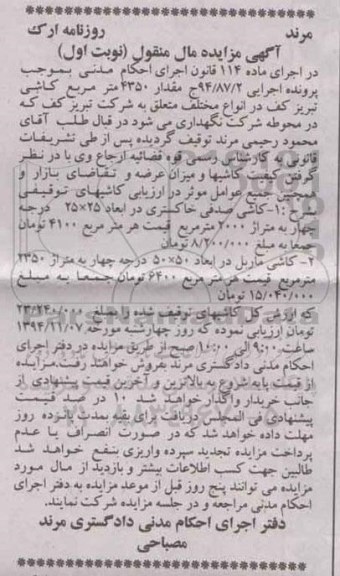 مرند روزنامه ارک
آگهی مزایده مال منقول (نوبت اول)
در اجرای ماده ۱۱۴ قانون اجرای احکام مدنی بموجب
پرونده اجرایی ۹۴/۸۷/۲ج مقدار ۴۳۵۰ متر مربع کاشی
تبریز کف در انواع مختلف متعلق به شرکت تبریز کف که
در محوطه شرکت نگهداری می شود در قبال طلب آقای
محمود رحیمی مرند توقیف گردیده پس از طی تشریفات
قانونی به کارشناس رسمی قوه قضائیه ارجاع وی با در نظر
گرفتن کیفیت کاشیها و میزان عرضه و تقاضای بازار و
همچنین جمیع عوامل موثر در ارزیابی کاشیهای توقیفی
بشرح :۱-کاشی صدفی خاکستری در ابعاد ۲۵×۲۵ درجه
چهار به متراژ ۲۰۰۰ مترمربع قیمت هر متر مربع ۴۱۰۰ تومان
جمعا به مبلغ ۸/۲۰۰/۰۰۰ تومان
۲- کاشی ماربل در ابعاد ۵۰×۵۰ درجه چهار به متراژ ۲۳۵۰
مترمربع قیمت هر متر مربع ۶۴۰۰ تومان جمعا به مبلغ
۱۵/۰۴۰/۰۰۰ تومان
که ارزش کل کاشیهای توقیف شده را بمبلغ ۲۳/۲۴۰/۰۰۰
تومان ارزیابی نموده که روز چهارشنبه مورخه ۱۳۹۴/۱۱/۰۷
ساعت ۹:۰۰ الی ۱۰:۰۰ صبح از طریق مزایده در دفتر اجرای
احکام مدنی دادگستری مرند بفروش خواهند رفت.مزایده
از قیمت پایه شروع به بالاترین و آخرین قیمت پیشنهادی از
جانب خریدار واگذار خواهد شد ۱۰ در صد قیمت
پیشنهادی فی المجلس دریافت برای بقیه بمدت پانزده روز
مهلت داده خواهد شد که در صورت انصراف یا عدم
پرداخت مزایده تجدید سپرده واریزی بنفع خواهد شد
طالبین جهت کسب اطلاعات بیشتر و بازدید از مال مورد
مزایده می توانند پنج روز قبل از موعد مزایده به دفتر اجرای
احکام مدنی مراجعه و در جلسه مزایده شرکت نمایند.
دفتر اجرای احکام مدنی دادگستری مرند
مصباحی